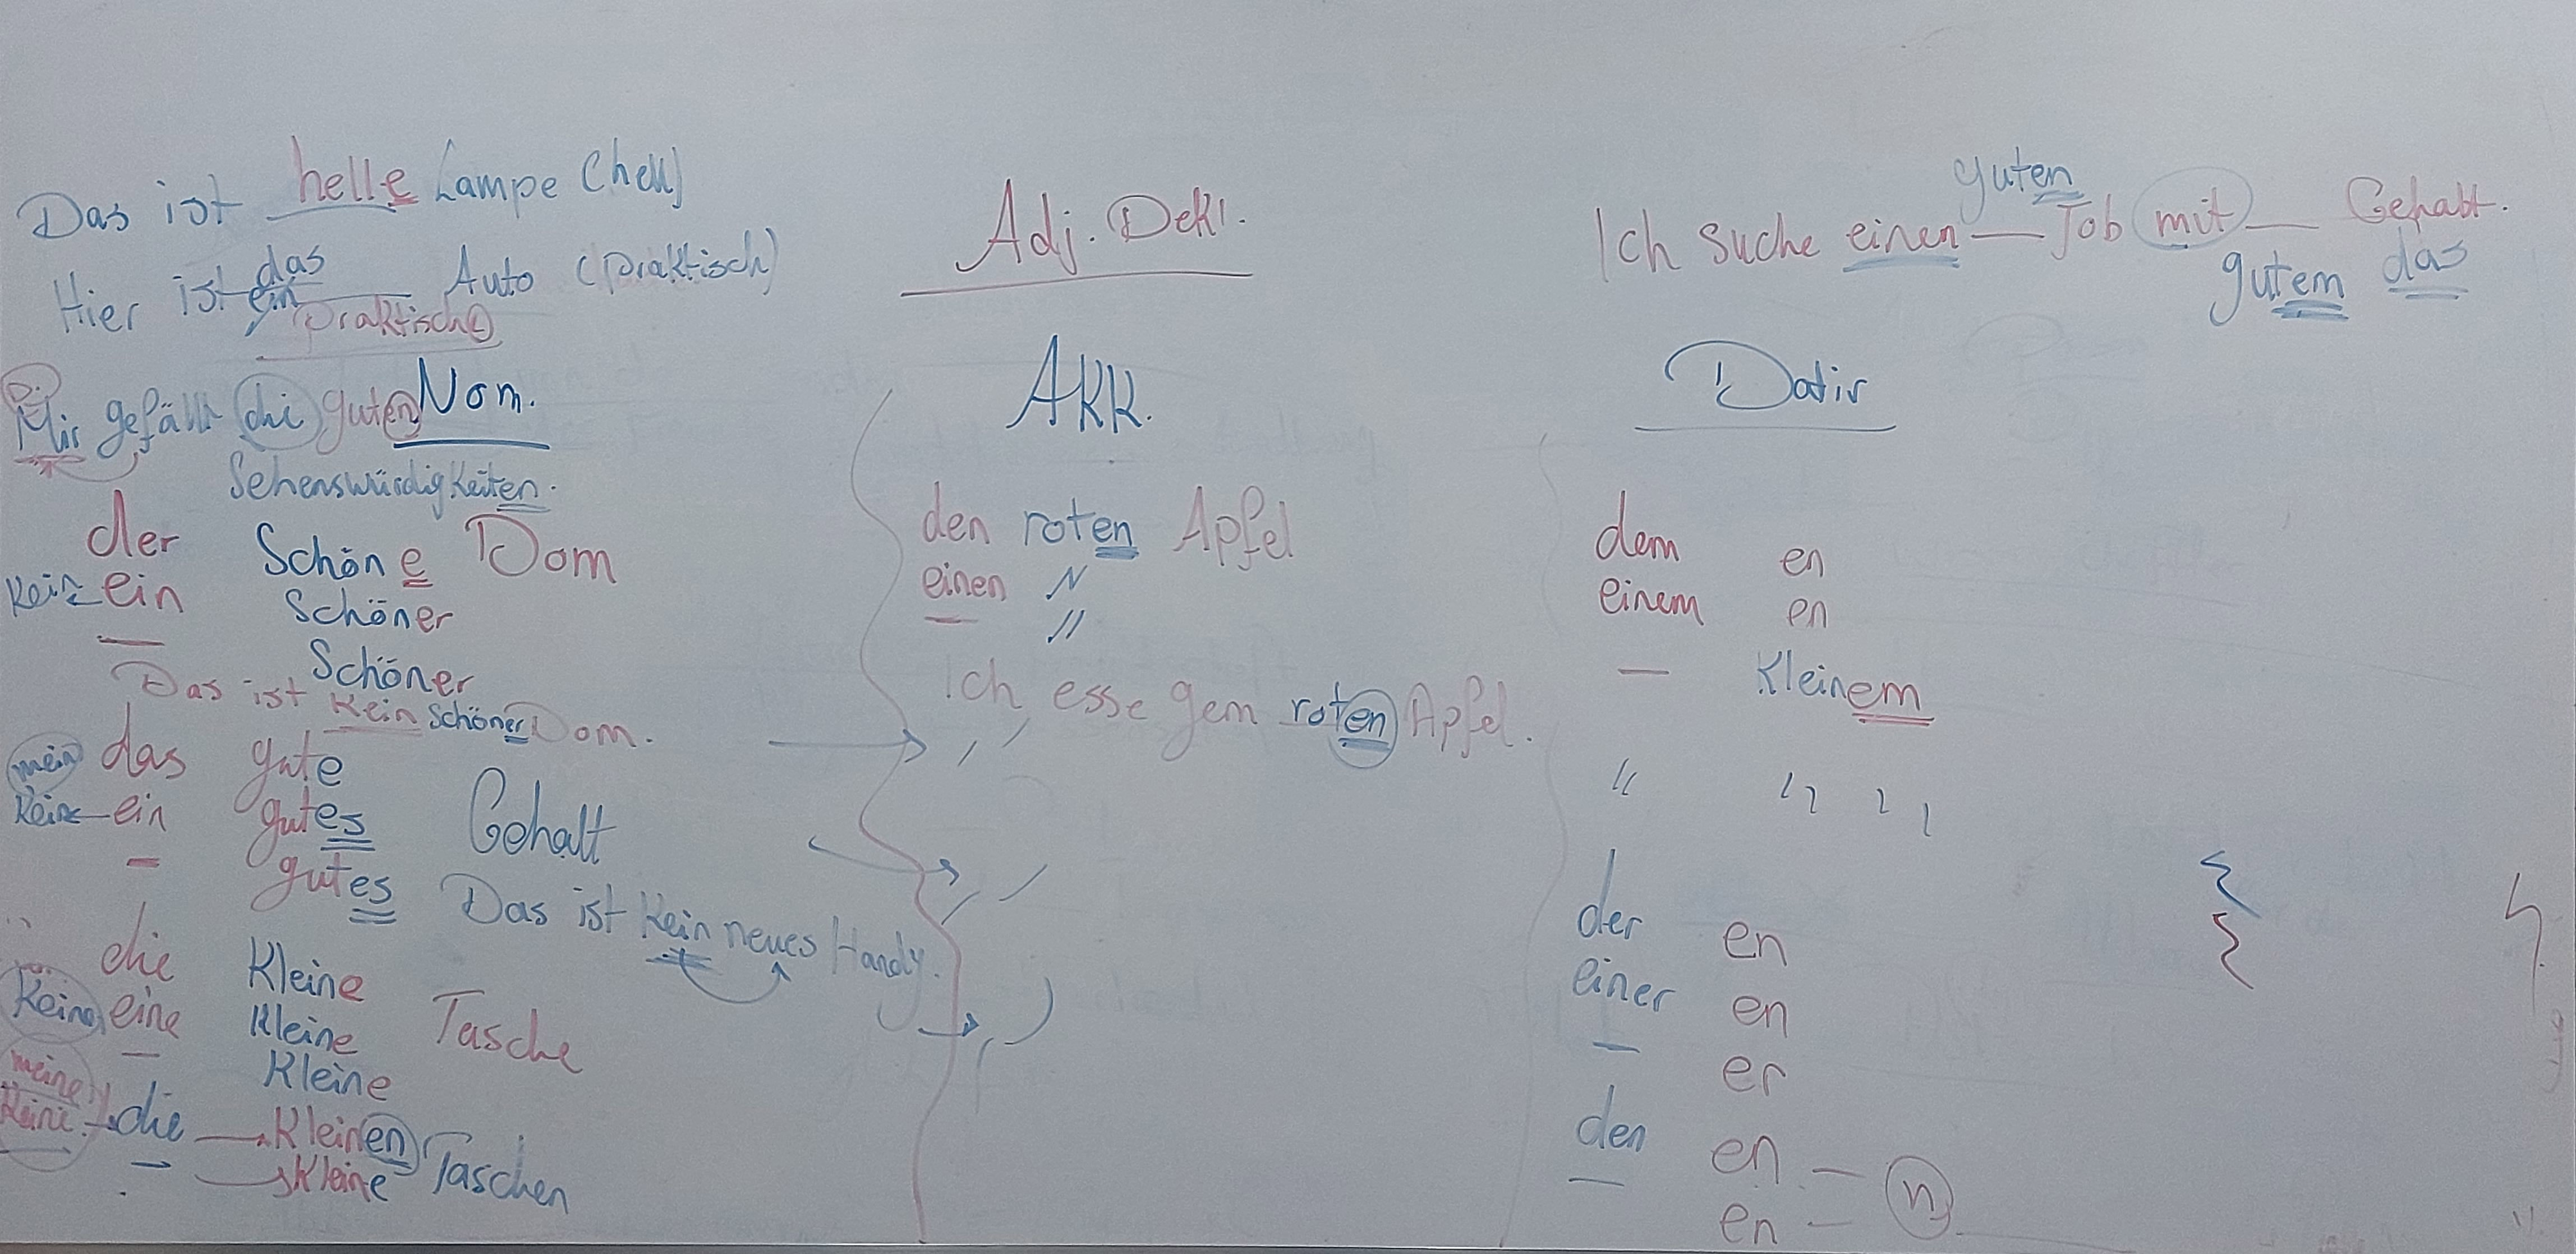 Das ist helle Lampe (hell)
Hier ist das Auto (praktisch)
ein
praktische
Mir gefällt die guten
Sehenswürdigkeiten.
Nom.
der schöne Dom
kein ein schöner
— schöner
Das ist kein schöner Dom.
mein das gute
kein ein gutes Gehalt
— gutes
Das ist kein neues Handy.
die kleine
keine eine kleine Tasche
— kleine
meine
keine die kleinen Taschen
— kleine
Adj. Dekl.
Akk.
den roten Apfel
einen "
— "
Ich esse gern roten Apfel.
guten
Ich suche einen — Job mit — Gehalt.
gutem das
Dativ
dem en
einem en
— kleinem
" " "
der en
einer en
— er
den en — n
— en —